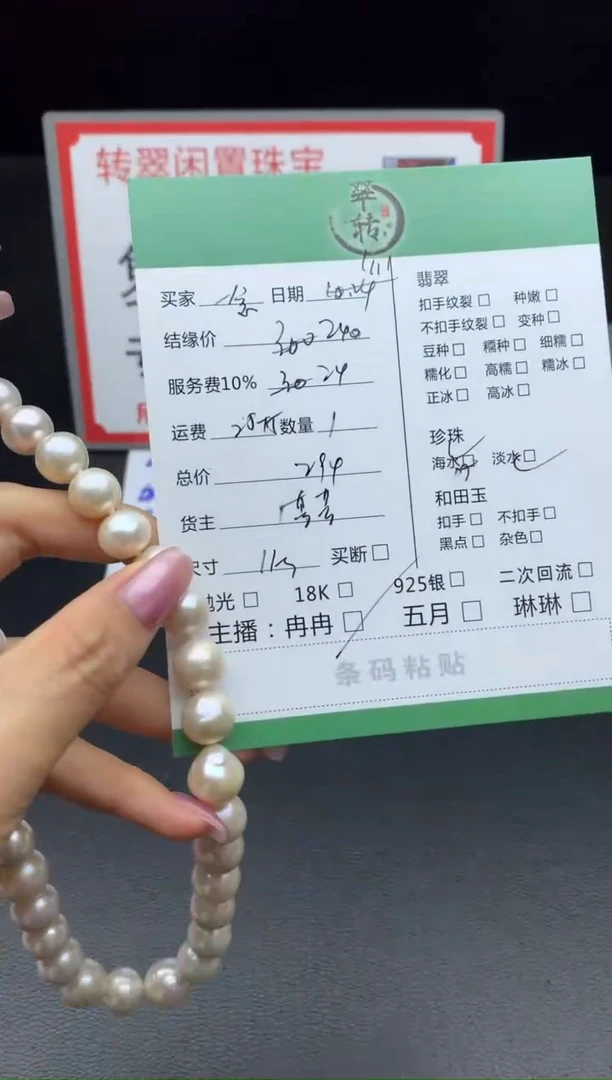 转翠闲置珠宝
翠
转
买家 日期
结缘价 300 240
服务费10% 30 24
运费 数量 1
总价 294
货主
尺寸 11 买断
抛光 18K 925银 二次回流
主播：冉冉 五月 琳琳
条码粘贴
翡翠
扣手纹裂 种嫩
不扣手纹裂 变种
豆种 糯种 细糯
糯化 高糯 糯冰
正冰 高冰
珍珠
海水 淡水
和田玉
扣手 不扣手
黑点 杂色